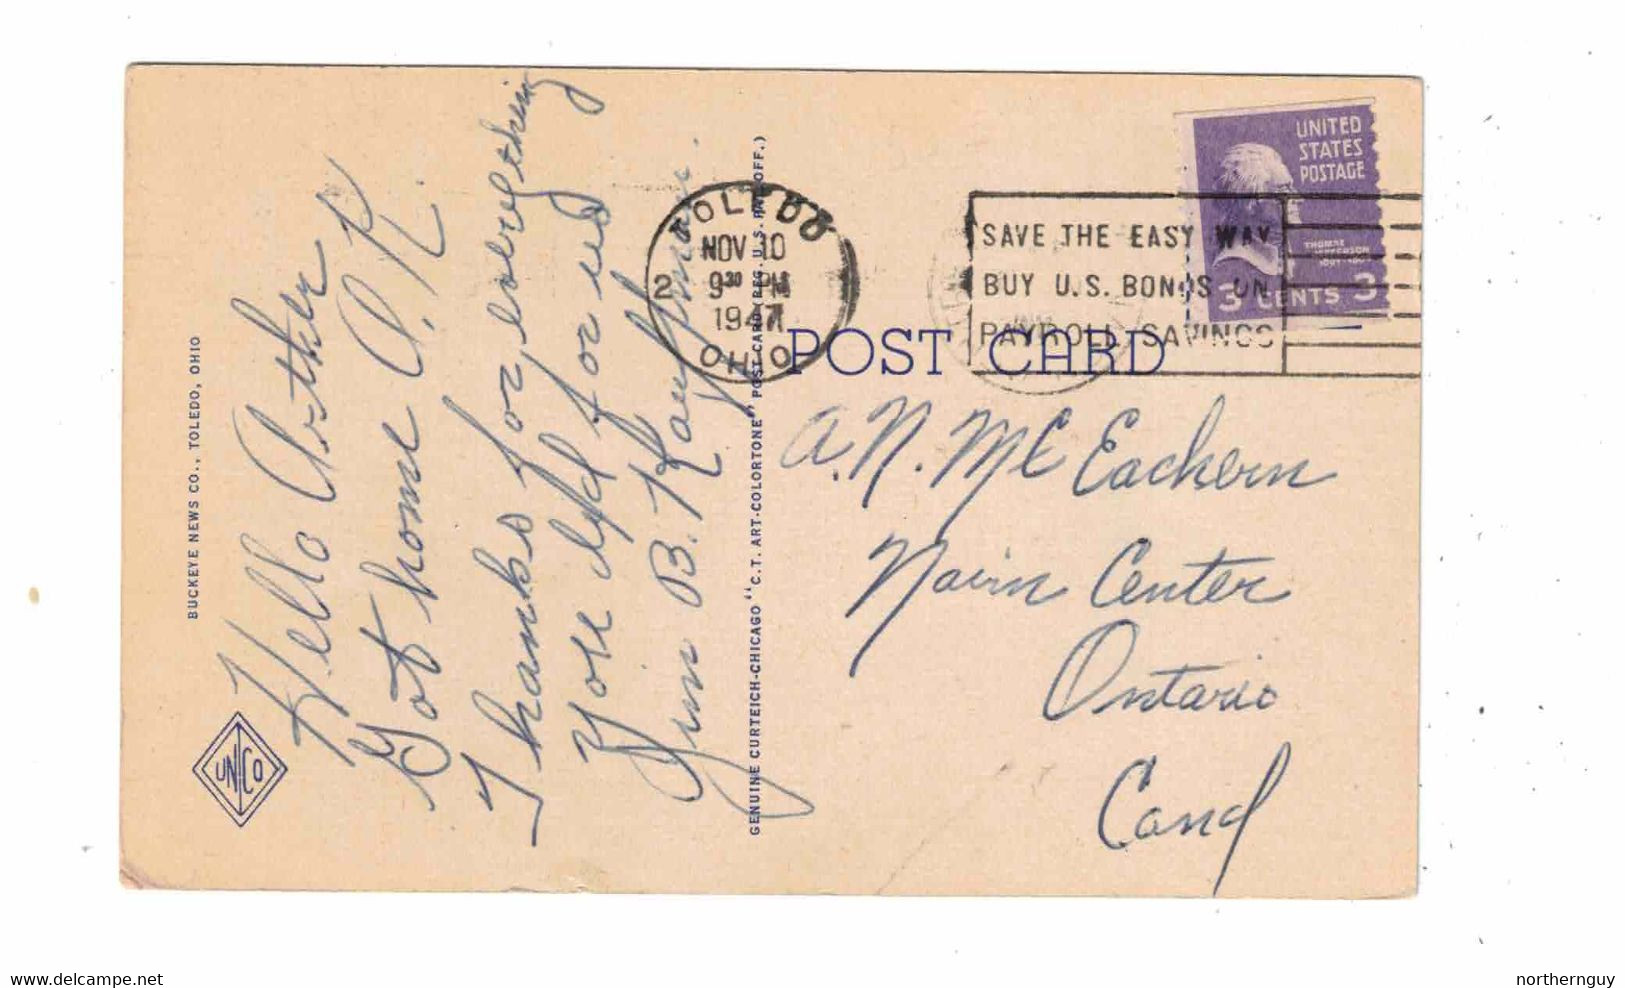 BUCKEYE NEWS CO., TOLEDO, OHIO
UNCO
Hello Arther
Got home O.K.
Thanks for, everything
You did for us
Jim B. Kauffman.
GENUINE CURTEICH-CHICAGO "C.T. ART-COLORTONE" POST CARD (REG. U.S. PAT. OFF.)
TOLEDO
NOV 10
2 9 30 PM
1947
OHIO
SAVE THE EASY WAY
BUY U.S. BONDS ON
PAYROLL SAVINGS
UNITED
STATES
POSTAGE
THOMAS
JEFFERSON
3 CENTS 3
POST CARD
A. N. McEachern
Nairn Center
Ontario
Cand
www.delcampe.net
northernguy